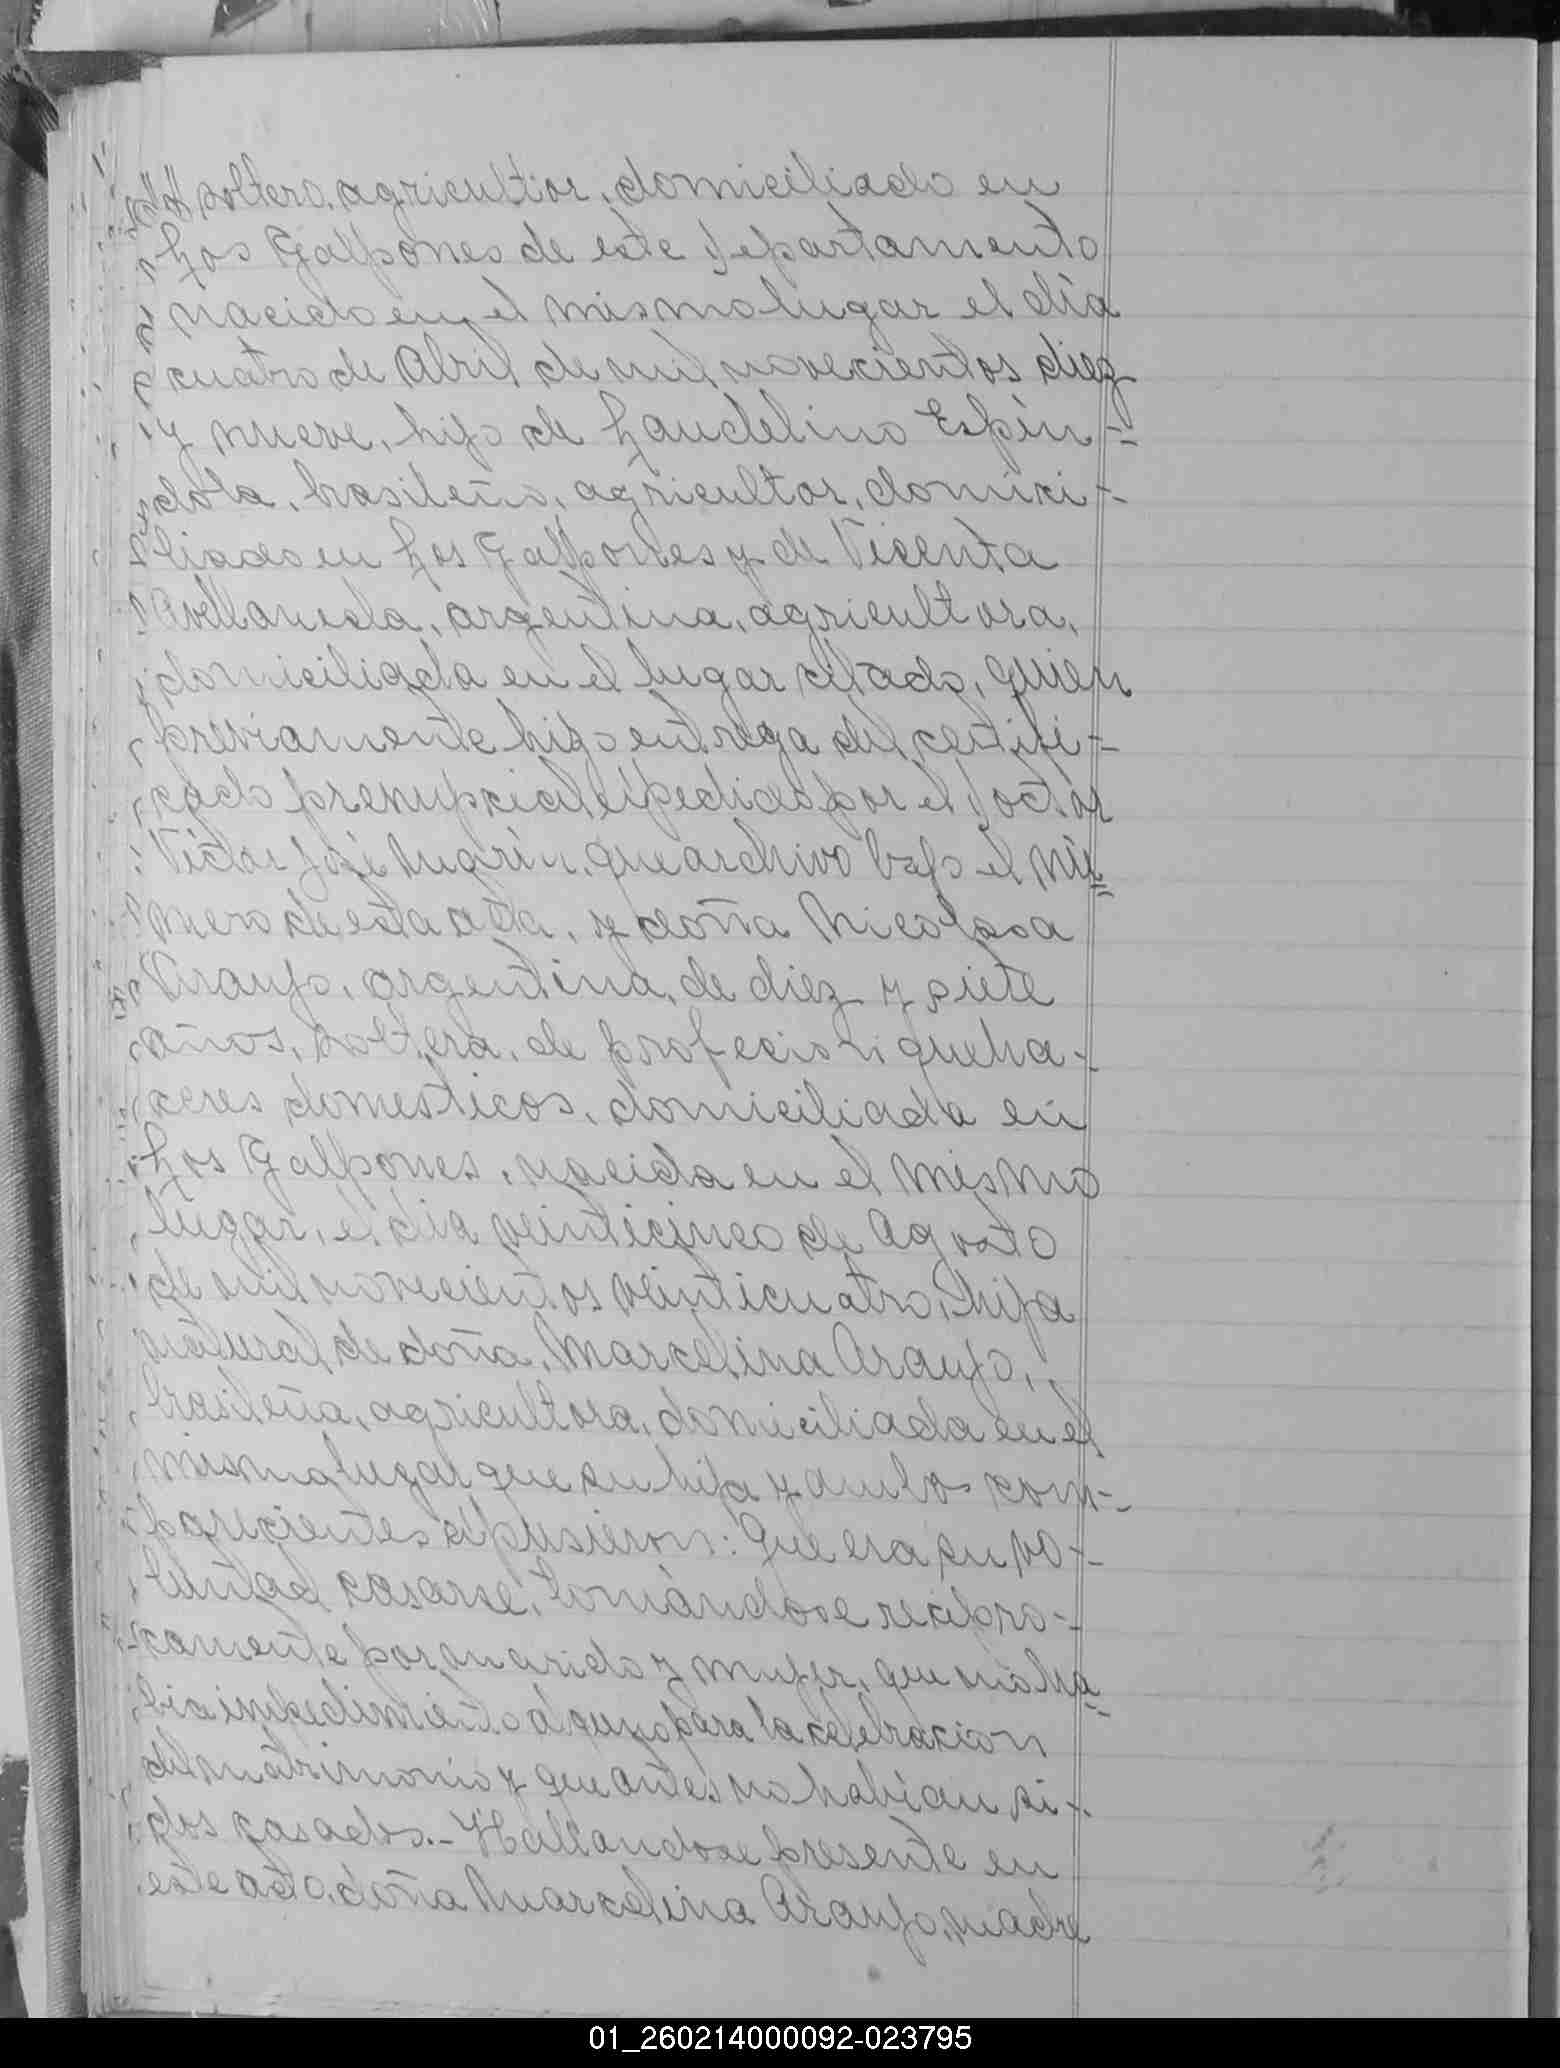 soltero, agricultor, domiciliado en
Los Galpones de este Departamento
nacido en el mismo lugar el día
cuatro de Abril de mil novecientos diez
y nueve, hijo de Laudelino Espín=
dola, brasileño, agricultor, domici-
liado en Los Galpones y de Vicenta
Avellaneda, argentina, agricultora,
domiciliada en el lugar citado, quien
previamente hizo entrega del certifi-
cado prenupcial expedido por el Doctor
Víctor José, que archivo bajo el nú=
mero de esta acta, y doña Nicolasa
Araujo, argentina, de diez y siete
años, soltera, de profecion queha-
ceres domesticos, domiciliada en
Los Galpones, nacida en el mismo
lugar, el dia veinticinco de Agosto
de mil novecientos veinticuatro, hija
natural de doña, Marcelina Araujo,
brasileña, agricultora, domiciliada en el
mismo lugar que su hija y ambos com-
parecientes expusieron: Que era su vo-
luntad casarse, tomándose recipro-
camente por marido y mujer, que no ha-
bia impedimento alguno para la celebracion
del matrimonio y que antes no habían si-
dos casados.- Hallandose presente en
este acto, doña Marcelina Araujo, madre
01_260214000092-023795